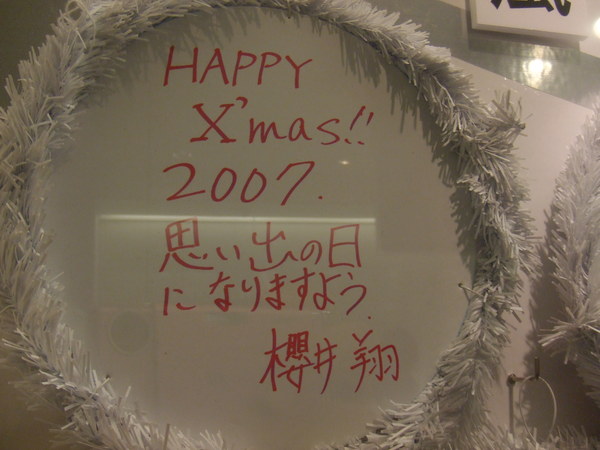 HAPPY
X'mas!!
2007.
思い出の日
になりますよう.
櫻井翔